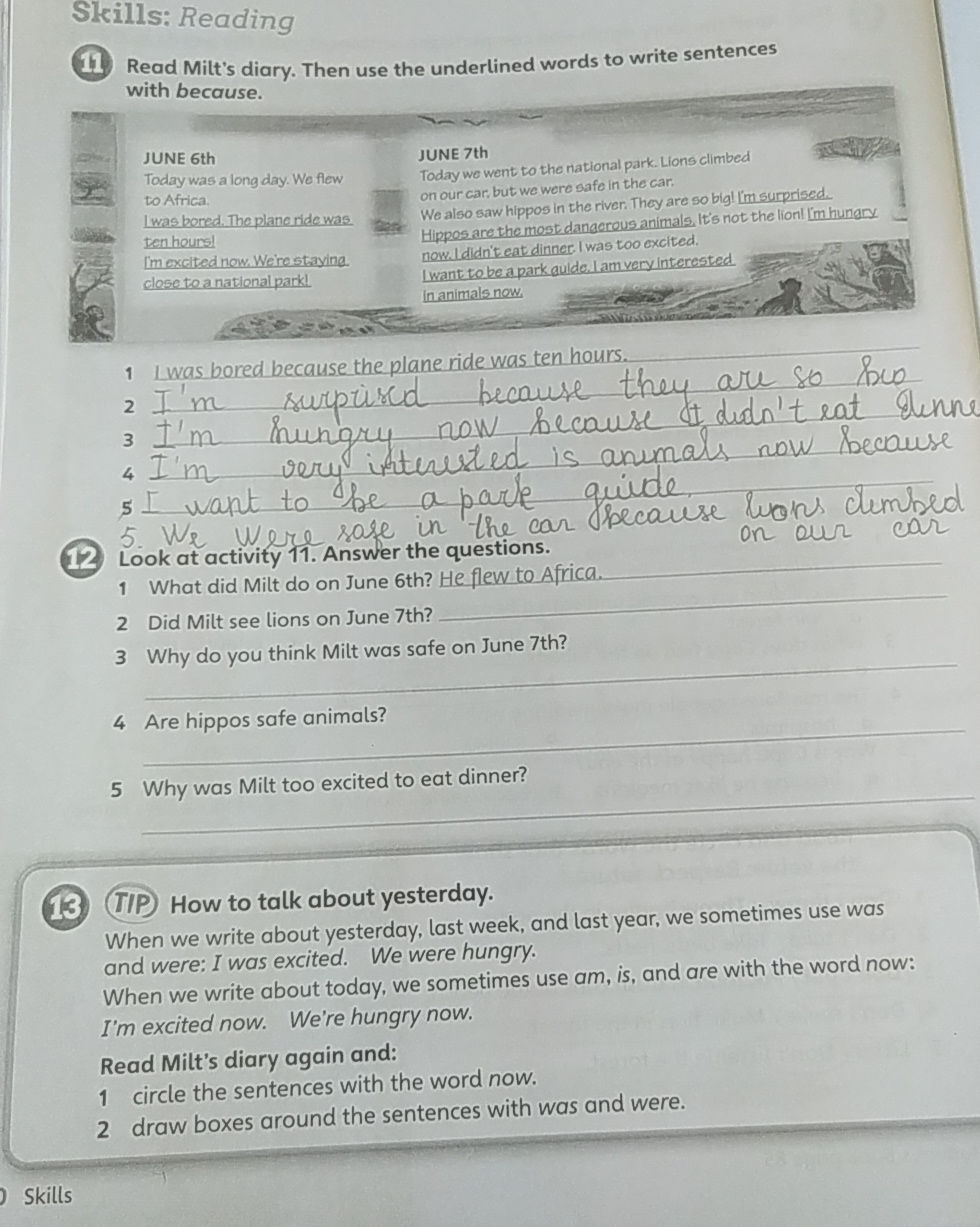 Skills: Reading
11 Read Milt's diary. Then use the underlined words to write sentences
with because.
JUNE 6th
Today was a long day. We flew
to Africa.
I was bored. The plane ride was
ten hours!
I'm excited now. We're staying
close to a national park!
JUNE 7th
Today we went to the national park. Lions climbed
on our car, but we were safe in the car.
We also saw hippos in the river. They are so big! I'm surprised.
Hippos are the most dangerous animals. It's not the lion! I'm hungry
now. I didn't eat dinner. I was too excited.
I want to be a park guide. I am very interested
in animals now.
1 I was bored because the plane ride was ten hours.
2 I'm surprised because they are so big
3 I'm hungry now because I didn't eat dinne
4 I'm very interested is animals now because
5 I want to be a park guide.
5. We were safe in the car because lions climbed
on our car
12 Look at activity 11. Answer the questions.
1 What did Milt do on June 6th? He flew to Africa.
2 Did Milt see lions on June 7th?
3 Why do you think Milt was safe on June 7th?
4 Are hippos safe animals?
5 Why was Milt too excited to eat dinner?
13 TIP How to talk about yesterday.
When we write about yesterday, last week, and last year, we sometimes use was
and were: I was excited. We were hungry.
When we write about today, we sometimes use am, is, and are with the word now:
I'm excited now. We're hungry now.
Read Milt's diary again and:
1 circle the sentences with the word now.
2 draw boxes around the sentences with was and were.
Skills